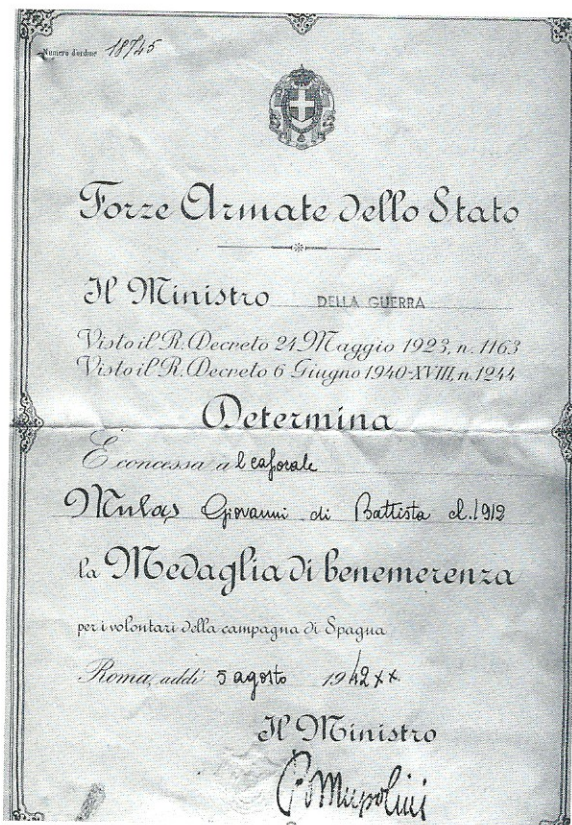 Numero d'ordine 18745
Forze Armate dello Stato
Il Ministro DELLA GUERRA
Visto il R. Decreto 24 Maggio 1923, n. 1163
Visto il R. Decreto 6 Giugno 1940-XVIII, n. 1244
Determina
È concessa al caporale
Mulas Giovanni di Battista cl. 1912
la Medaglia di benemerenza
per i volontari della campagna di Spagna
Roma, addì 5 agosto 1942 XX
Il Ministro
Mussolini